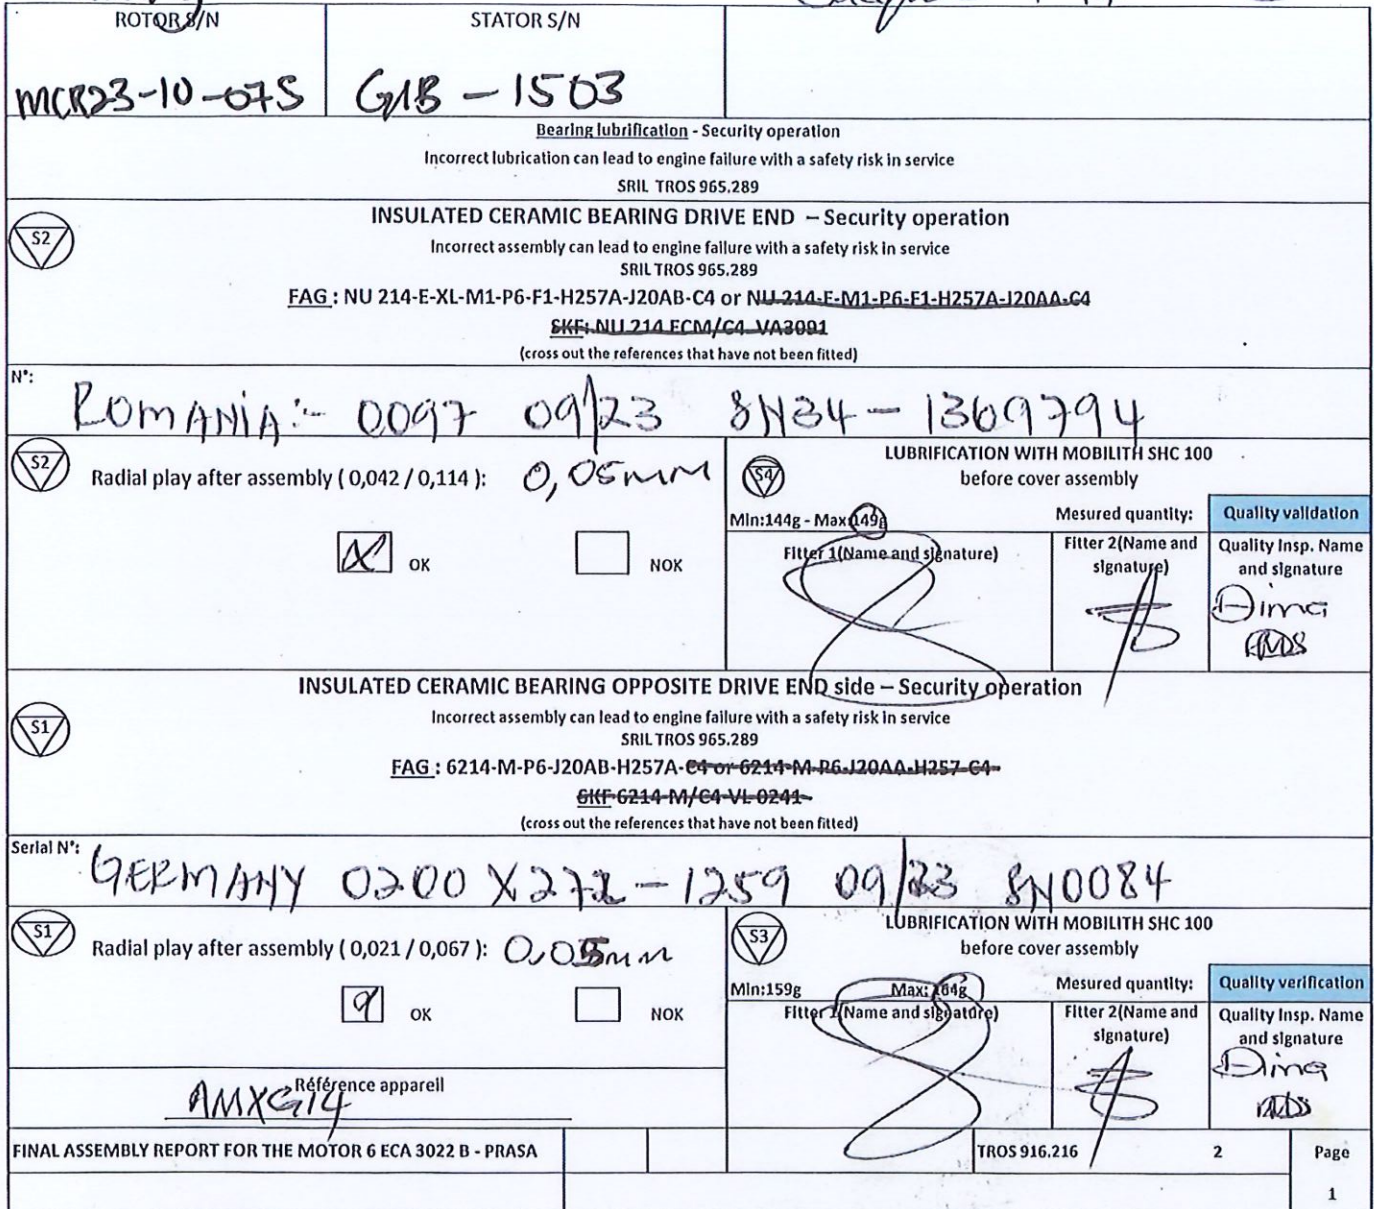 ROTOR S/N STATOR S/N
MCR23-10-075 G1B - 1503
Bearing lubrification - Security operation
Incorrect lubrication can lead to engine failure with a safety risk in service
SRIL TROS 965.289
S2
INSULATED CERAMIC BEARING DRIVE END – Security operation
Incorrect assembly can lead to engine failure with a safety risk in service
SRIL TROS 965.289
FAG : NU 214-E-XL-M1-P6-F1-H257A-J20AB-C4 or NU 214-E-M1-P6-F1-H257A-J20AA-C4
SKF: NU 214 ECM/C4 VA3091
(cross out the references that have not been fitted)
N°:
ROMANIA:- 0097 09/23 SN34 - 1369794
S2
Radial play after assembly ( 0,042 / 0,114 ): 0,05mm
OK NOK
S4
LUBRIFICATION WITH MOBILITH SHC 100
before cover assembly
Min:144g - Max:149g Mesured quantity: Quality validation
Fitter 1(Name and signature)
Fitter 2(Name and signature)
Quality Insp. Name and signature
Dima
INSULATED CERAMIC BEARING OPPOSITE DRIVE END side – Security operation
S1
Incorrect assembly can lead to engine failure with a safety risk in service
SRIL TROS 965.289
FAG : 6214-M-P6-J20AB-H257A-C4 or 6214-M-P6-J20AA-H257-C4
SKF 6214-M/C4-VL 0241
(cross out the references that have not been fitted)
Serial N°:
GERMANY 0200 X272 - 1259 09/23 SN0084
S1
Radial play after assembly ( 0,021 / 0,067 ): 0,05mm
OK NOK
S3
LUBRIFICATION WITH MOBILITH SHC 100
before cover assembly
Min:159g Max: 164g Mesured quantity: Quality verification
Fitter 1(Name and signature)
Fitter 2(Name and signature)
Quality Insp. Name and signature
Dima
Référence appareil
AMXG14
FINAL ASSEMBLY REPORT FOR THE MOTOR 6 ECA 3022 B - PRASA TROS 916.216 2 Page
1